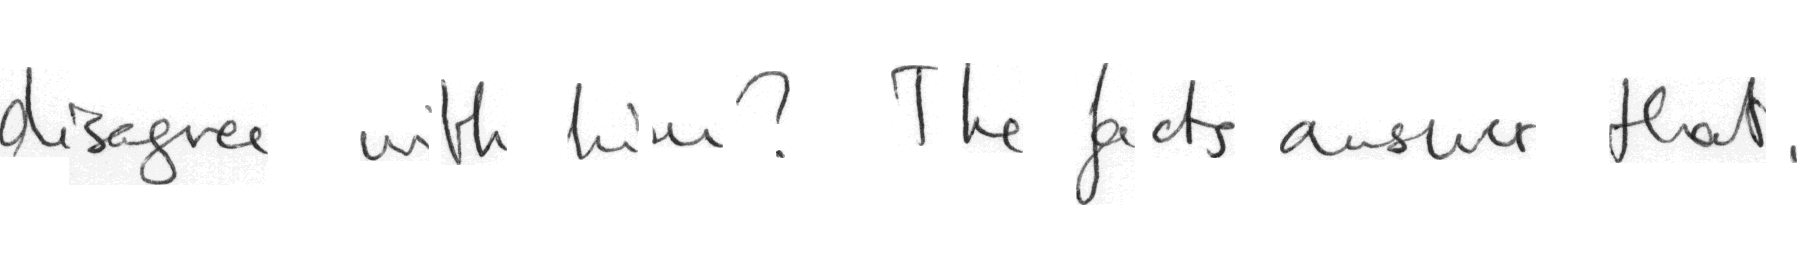 disagree with him? The facts answer that.